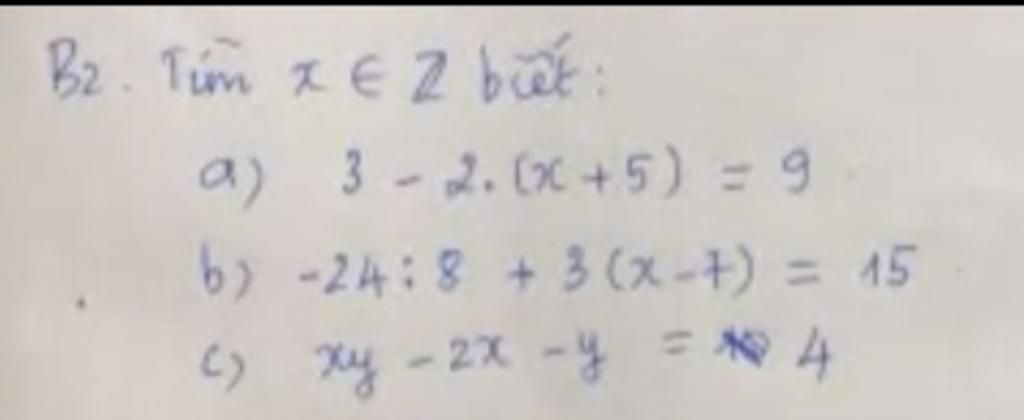 B2. Tìm x ∈ ℤ biết:
a) 3 - 2.(x+5) = 9
b) -24:8 + 3(x-7) = 15
c) xy - 2x - y = 4